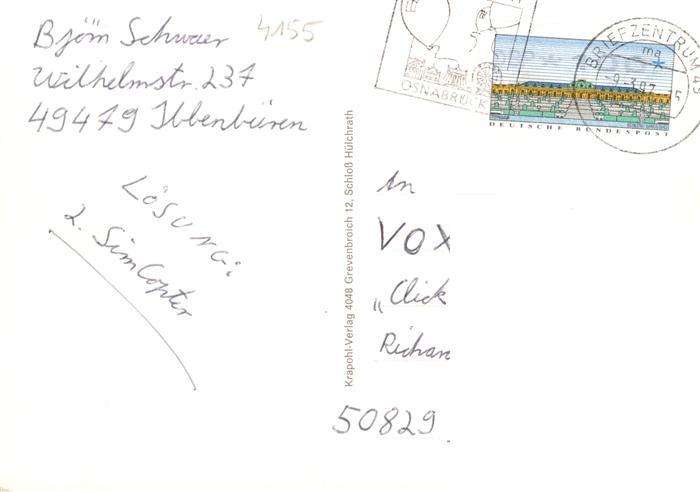 Björn Schwaer 4155
Wilhelmstr. 237
49479 Ibbenbüren
LÖSUNG:
2. SimCopter
OSNABRÜCK
BRIEFZENTRUM
ma
DEUTSCHE BUNDESPOST
Krapohl-Verlag 4048 Grevenbroich 12, Schloß Hülchrath
An
VOX
„Click
Richar
50829